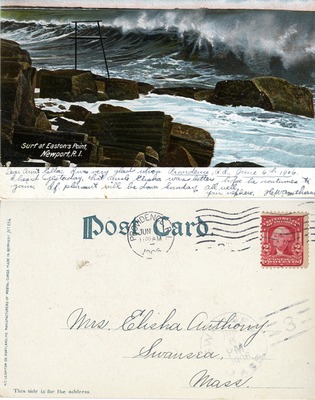 Surf at Easton's Point,
Newport, R.I.
Dear Aunt Ella: I was very glad when Providence, R.I. June 6th 1906
I heard yesterday that Uncle Elisha was better hope he continues to
gain. If pleasant will be down Sunday all well,
Post Card.
PROVIDENCE
JUN
1906
Mrs. Elisha Anthony
Swansea,
Mass.
This side is for the address